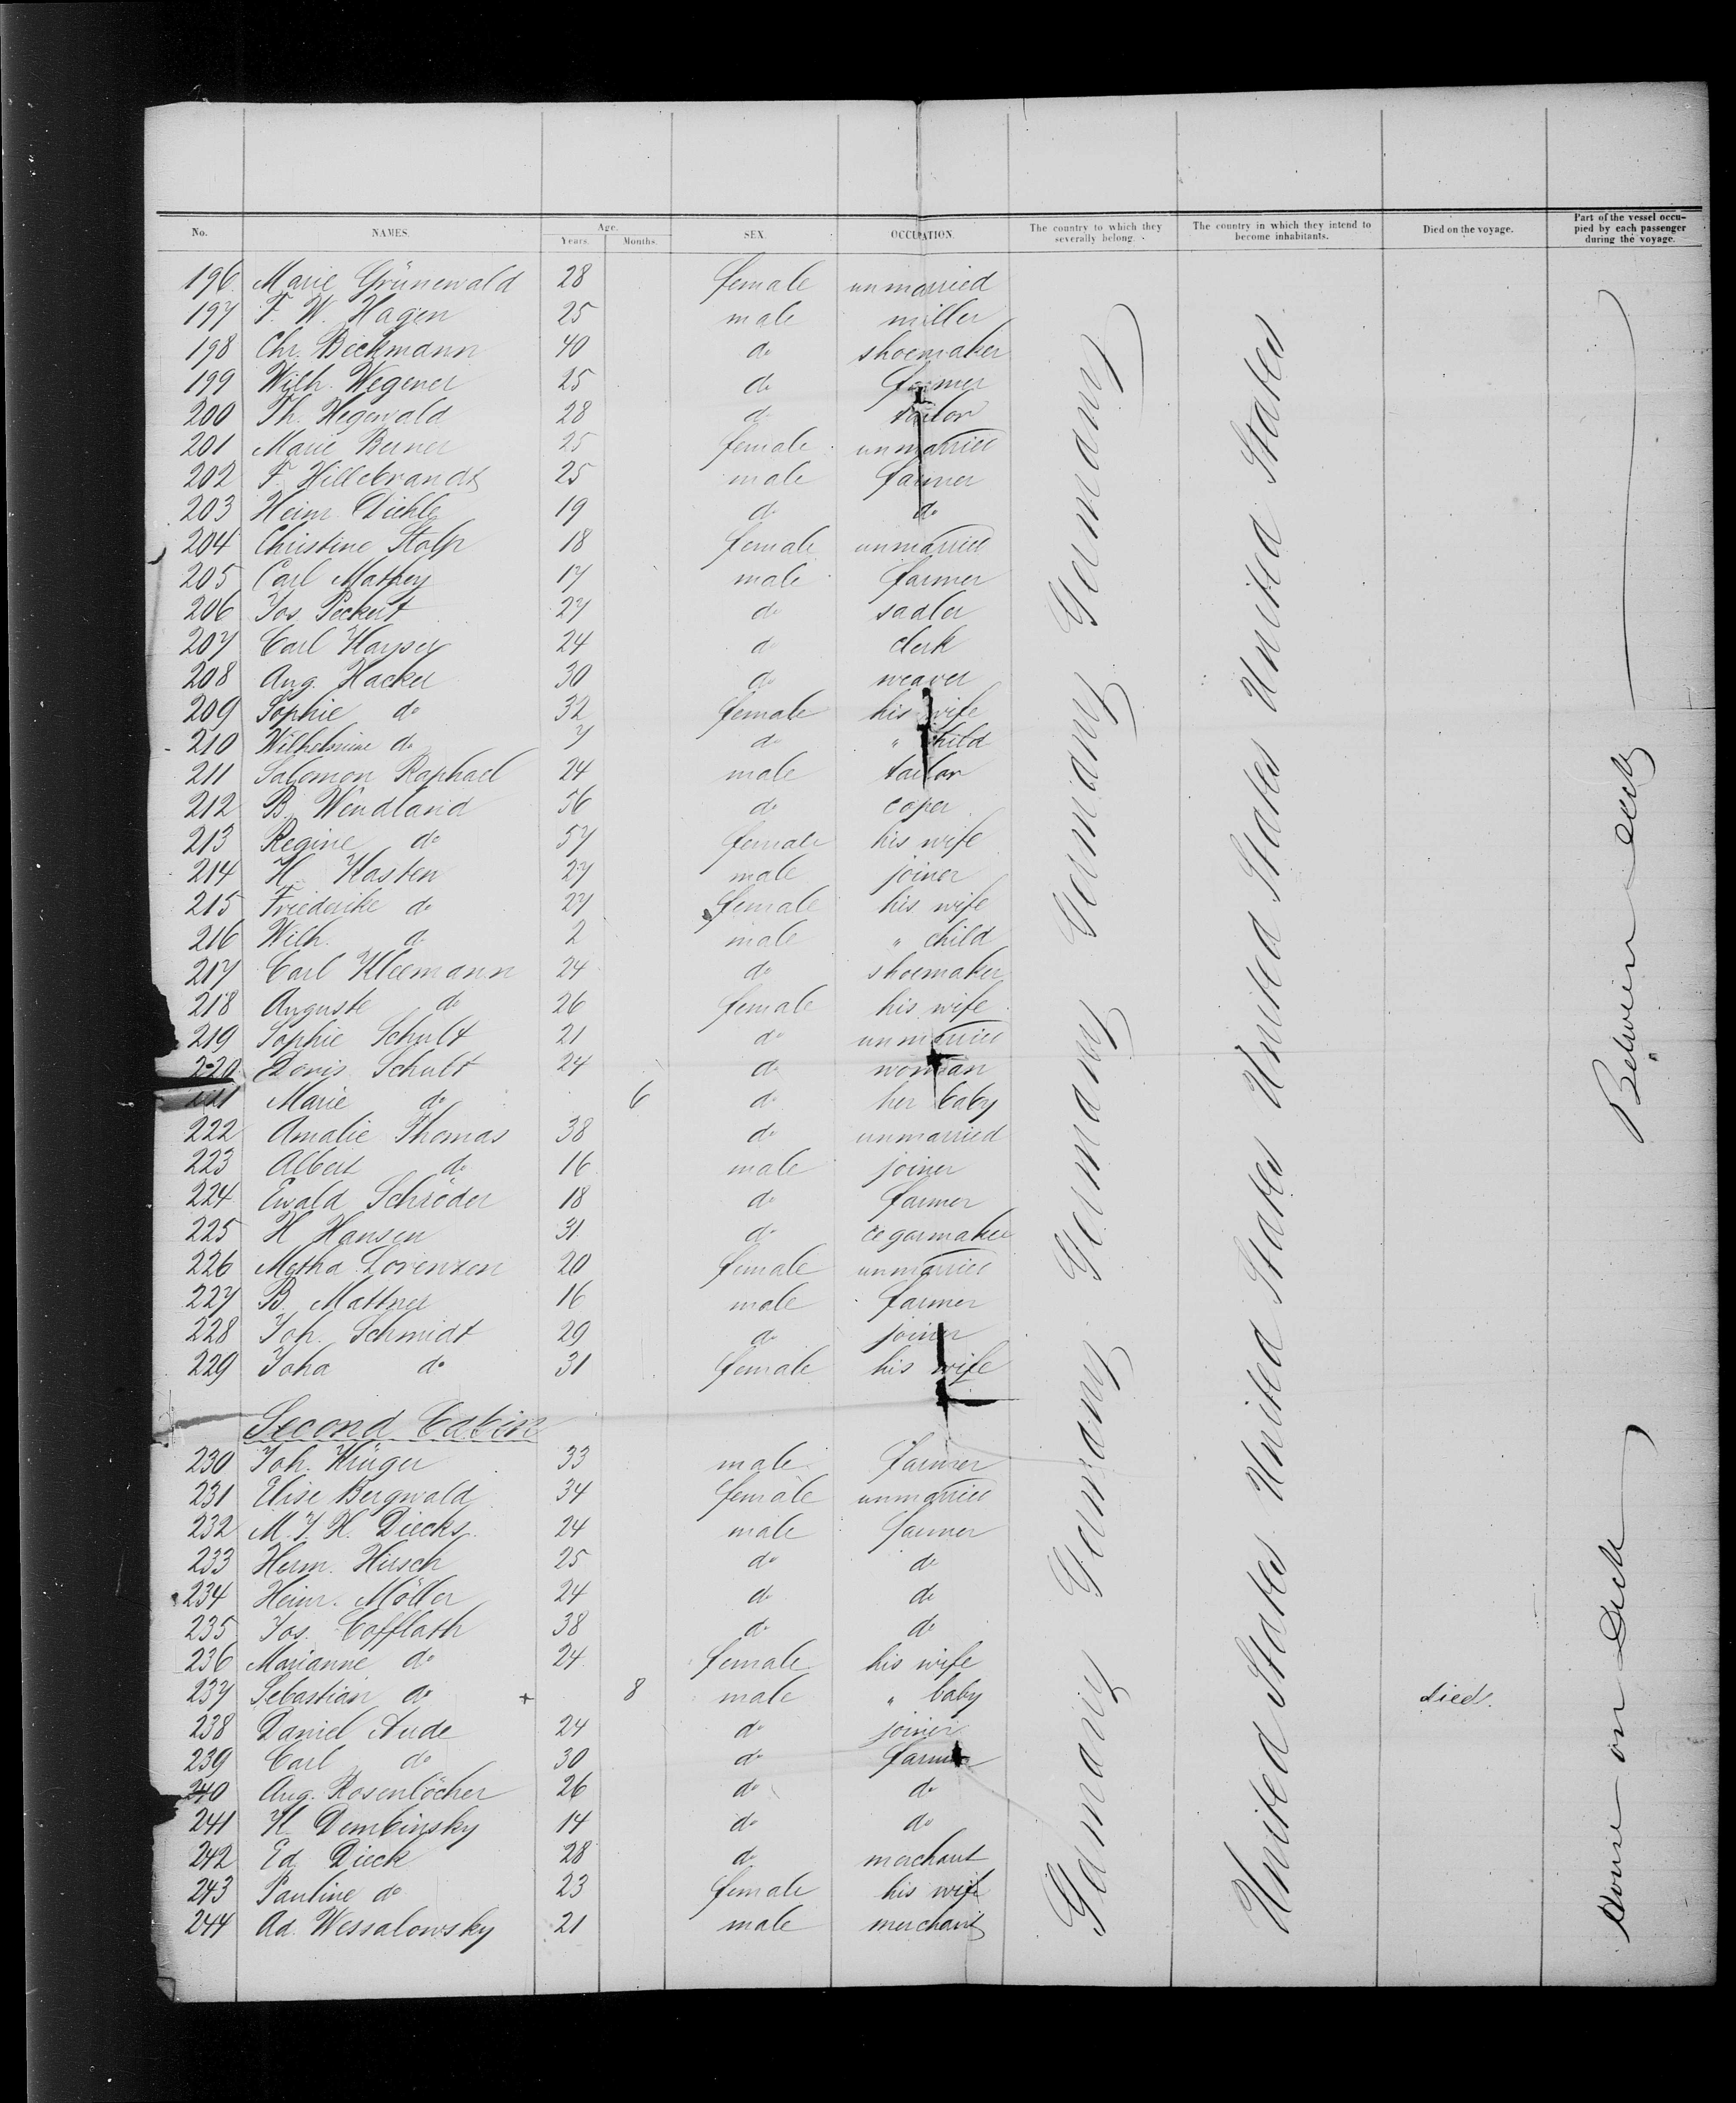 No. NAMES. Age. Years. Months. SEX. OCCUPATION. The country to which they severally belong. The country in which they intend to become inhabitants. Died on the voyage. Part of the vessel occupied by each passenger during the voyage.
196 Marie Grünewald 28 female unmarried
197 F. W. Hagen 25 male miller
198 Chr. Beckmann 40 do shoemaker
199 Wilh. Wegener 25 do farmer
200 Th. Hegewald 28 do tailor
201 Marie Berner 25 female unmarried
202 F. Hillebrandt 25 male farmer
203 Heinr. Diehle 19 do do
204 Christine Stolp 18 female unmarried
205 Carl Mathey 17 male farmer
206 Jos. Peckert 27 do sadler
207 Carl Kayser 24 do clerk
208 Aug. Hacker 30 do weaver
209 Sophie do 32 female his wife
210 Wilhelmine do 7 do " child
211 Salomon Raphael 24 male tailor
212 B. Wendland 56 do coper
213 Regine do 57 female his wife
214 H. Kasten 27 male joiner
215 Friederike do 27 female his wife
216 Wilh. do 2 male " child
217 Carl Kleemann 24 do shoemaker
218 Auguste do 26 female his wife
219 Sophie Schult 21 do unmarried
220 Doris Schult 24 do woman
221 Marie do 6 do her baby
222 Amalie Thomas 38 do unmarried
223 Albert do 16 male joiner
224 Ewald Schröder 18 do farmer
225 H Hansen 31 do cegarmaker
226 Metha Lorenzen 20 female unmarried
227 B. Mattner 16 male farmer
228 Joh. Schmidt 29 do joiner
229 Joha do 31 female his wife
Second Cabin
230 Joh. Krüger 33 male farmer
231 Elise Bergwald 34 female unmarried
232 M. J. H. Diecks 24 male farmer
233 Herm. Hirsch 25 do do
234 Heinr. Möller 24 do do
235 Jos. Cofflath 38 do do
236 Marianne do 24 female his wife
237 Sebastian do + 8 male " baby died.
238 Daniel Aude 24 do joiner
239 Carl do 30 do farmer
240 Aug. Rosenlöcher 26 do do
241 H Dembinsky 14 do do
242 Ed Dieck 28 do merchant
243 Pauline do 23 female his wife
244 Ad. Wessalowsky 21 male merchant
Germany Germany Germany Germany Germany Germany
United States United States United States United States United States
Between deck
House on Deck